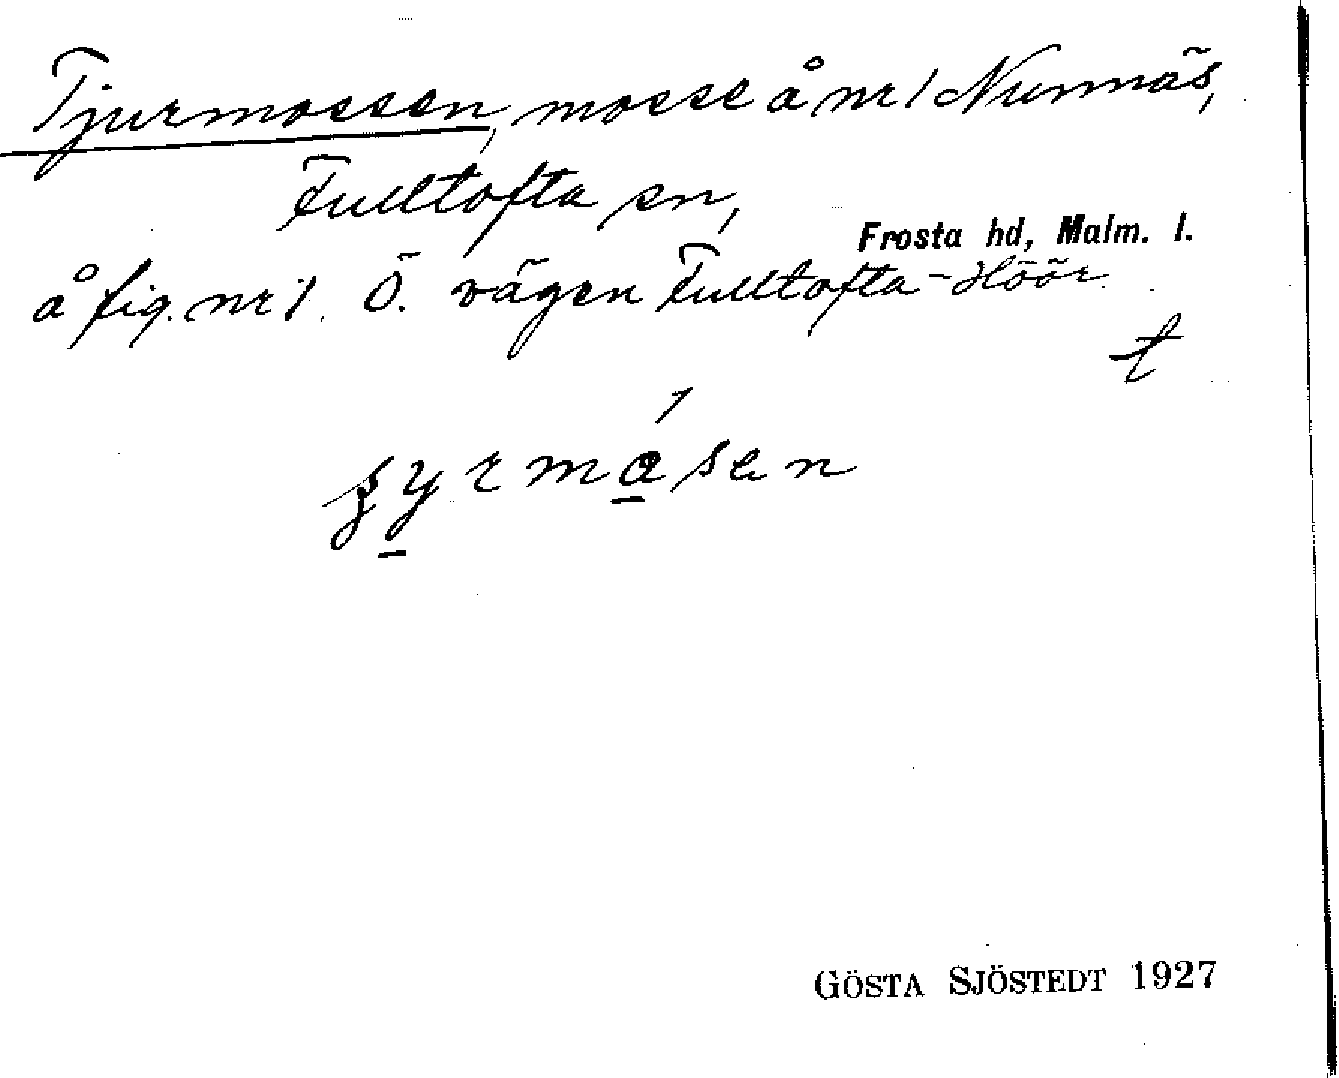 Tjurmossen, mosse å nr 1 Nunnäs,
Fulltofta sn,
Frosta hd, Malm. l.
å fig. nr 1. Ö. vägen Fulltofta-Höör.
t
GÖSTA SJÖSTEDT 1927